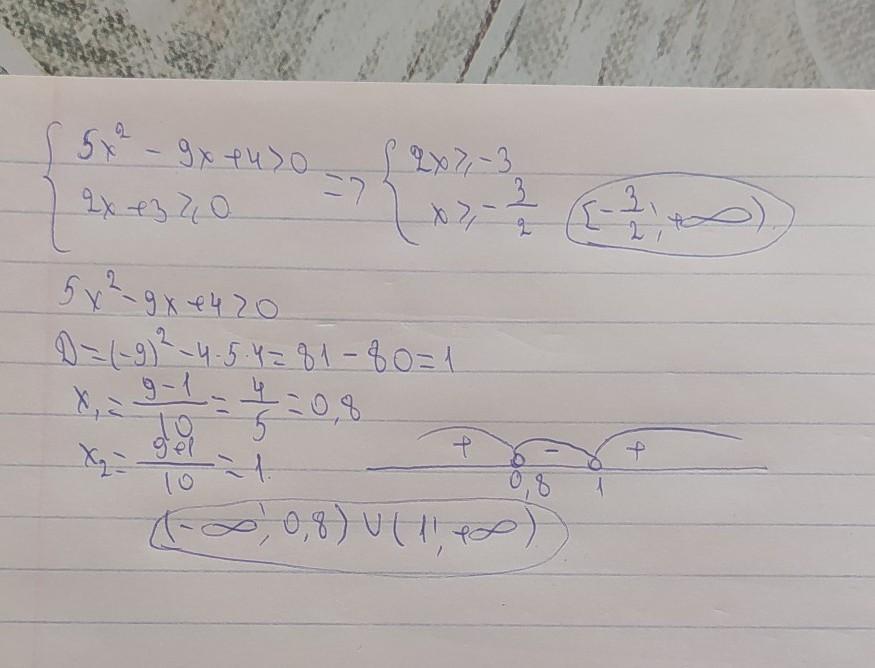 { 5x² - 9x + 4 > 0 => { 2x ⩾ -3
2x + 3 ⩾ 0 x ⩾ -3/2 [-3/2; +∞)
5x² - 9x + 4 > 0
D = (-9)² - 4·5·4 = 81 - 80 = 1
x₁ = 9-1/10 = 4/5 = 0,8
x₂ = 9+1/10 = 1.
+ - +
0,8 1
(-∞; 0,8) ∪ (1; +∞)